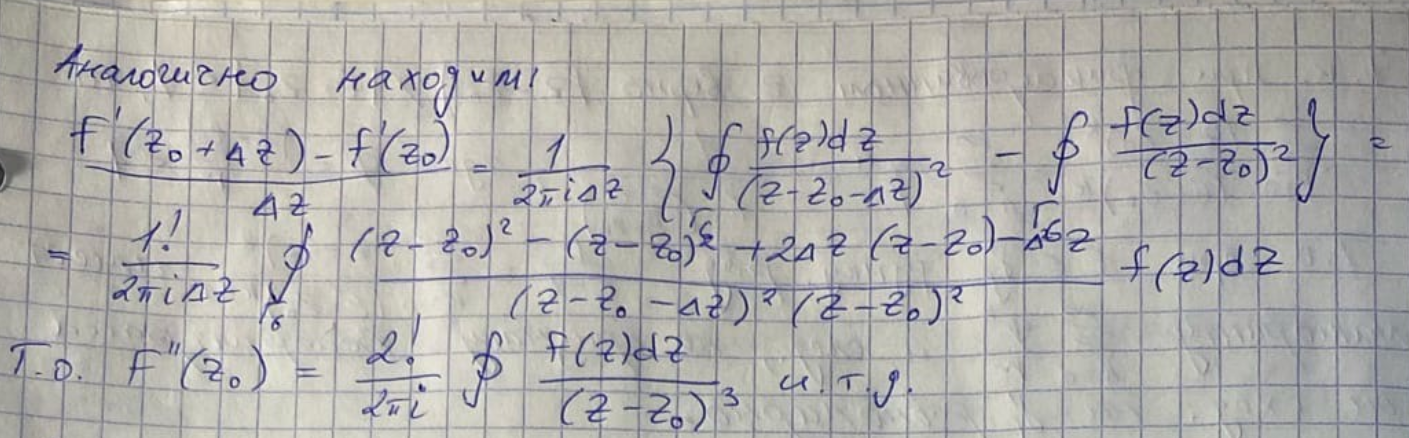 Аналогично находим:
f'(z₀ + Δz) − f'(z₀) / Δz = 1 / 2πiΔz { ∮ f(z)dz / (z−z₀−Δz)² − ∮ f(z)dz / (z−z₀)² } =
= 1! / 2πiΔz ∮ (z−z₀)² − (z−z₀)² + 2Δz (z−z₀) − Δ²z / (z−z₀−Δz)² (z−z₀)² f(z)dz
Т.о. F''(z₀) = 2! / 2πi ∮ f(z)dz / (z−z₀)³ и.т.д.